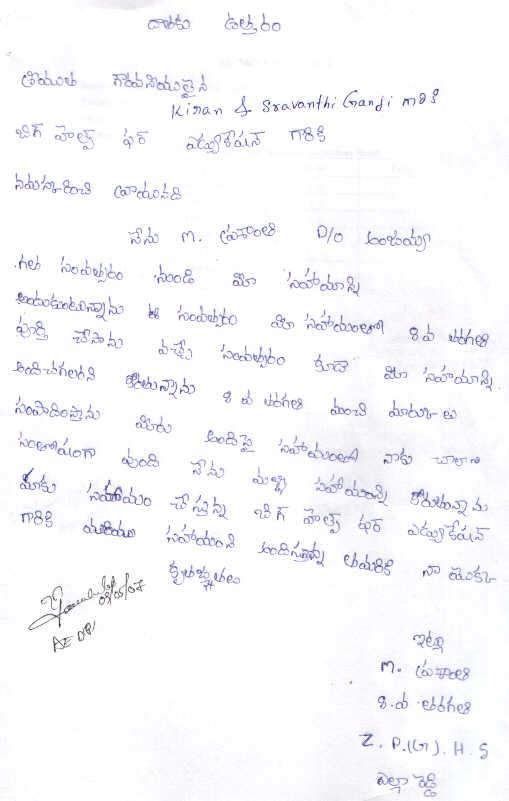 దాతకు ఉత్తరం
శ్రీయుత గౌరవనీయులైన
Kiran & Sravanthi Gandi గారికి
బిగ్ హెల్ప్ ఫర్ ఎడ్యుకేషన్ గారికి
నమస్కరించి వ్రాయునది
నేను M. ప్రశాంతి D/o అంజయ్య
గత సంవత్సరం నుండి మీ సహాయాన్ని
అందుకుంటున్నాను ఈ సంవత్సరం మీ సహాయంతో 8 వ తరగతి
పూర్తి చేసాను వచ్చే సంవత్సరం కూడా మీ సహయాన్ని
అందిచగలరని కోరుతున్నాను 8 వ తరగతి మంచి మార్కులు
సంపాదిస్తాను మీరు అందిస్తె సహాయంతో నాకు చాలా
సంతోషంగా వుంది నేను మళ్ళి సహాయాన్ని కోరుతున్నాను
మాకు సహాయం చేస్తున్న బిగ్ హెల్ప్ ఫర్ ఎడ్యుకేషన్
గారికి మరియు సహాయంని అందిస్తున్న తమరికి నా యొక్క
కృతజ్ఞతలు
ఇట్లు
M. ప్రశాంతి
8.వ తరగతి
Z. P.(G). H. S
ఎల్లా రెడ్డి